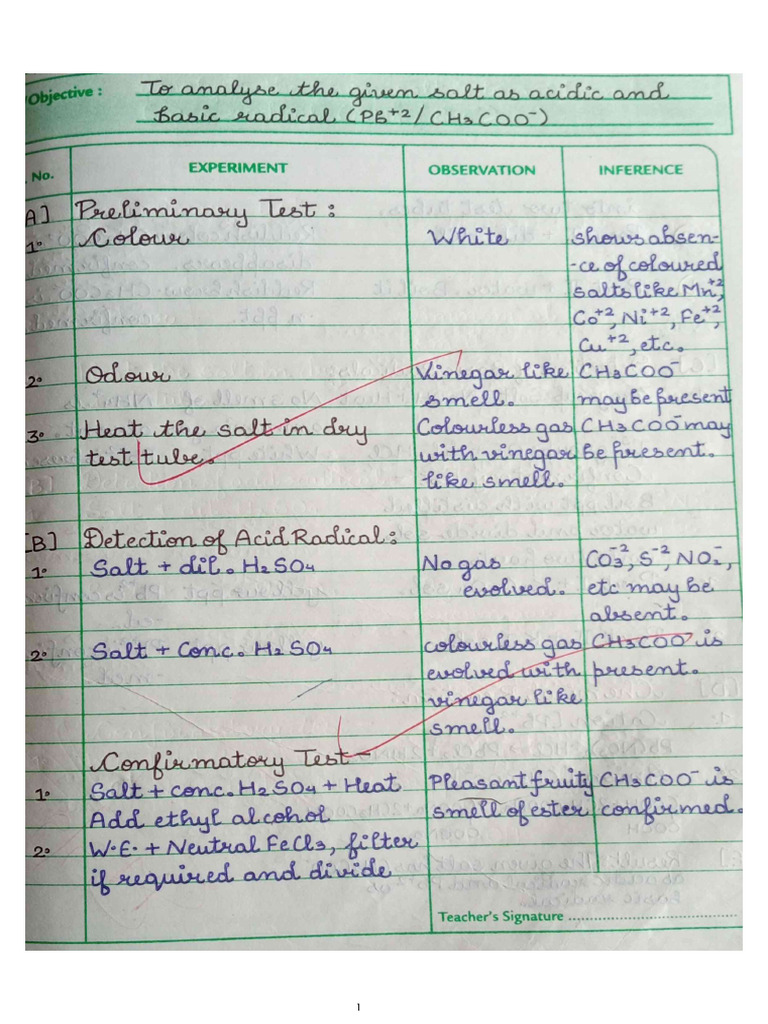 Objective : To analyse the given salt as acidic and
basic radical (Pb+2/CH3COO-)
No. EXPERIMENT OBSERVATION INFERENCE
A] Preliminary Test :
1. Colour White shows absen-
-ce of coloured
salts like Mn+2,
Co+2, Ni+2, Fe+2,
Cu+2, etc.
2. Odour Vinegar like CH3COO-
smell. may be present
3. Heat the salt in dry Colourless gas CH3COO- may
test tube. with vinegar be present.
like smell.
[B] Detection of Acid Radical :
1. Salt + dil. H2SO4 No gas CO3-2, S-2, NO2-,
evolved. etc may be
absent.
2. Salt + Conc. H2SO4 colourless gas CH3COO- is
evolved with present.
vinegar like
smell.
Confirmatory Test -
1. Salt + conc. H2SO4 + Heat Pleasant fruity CH3COO- is
Add ethyl alcohol smell of ester confirmed.
2. W.E. + Neutral FeCl3, filter
if required and divide
Teacher's Signature
1